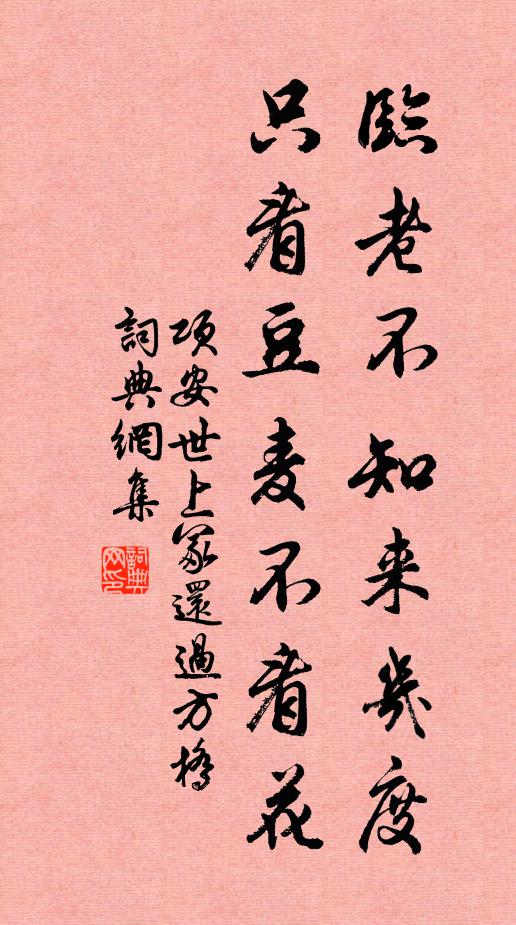 臨老不知来幾度
只看豆麦不看花
項安世上冢還過方橋
詞典網集
詞典网印